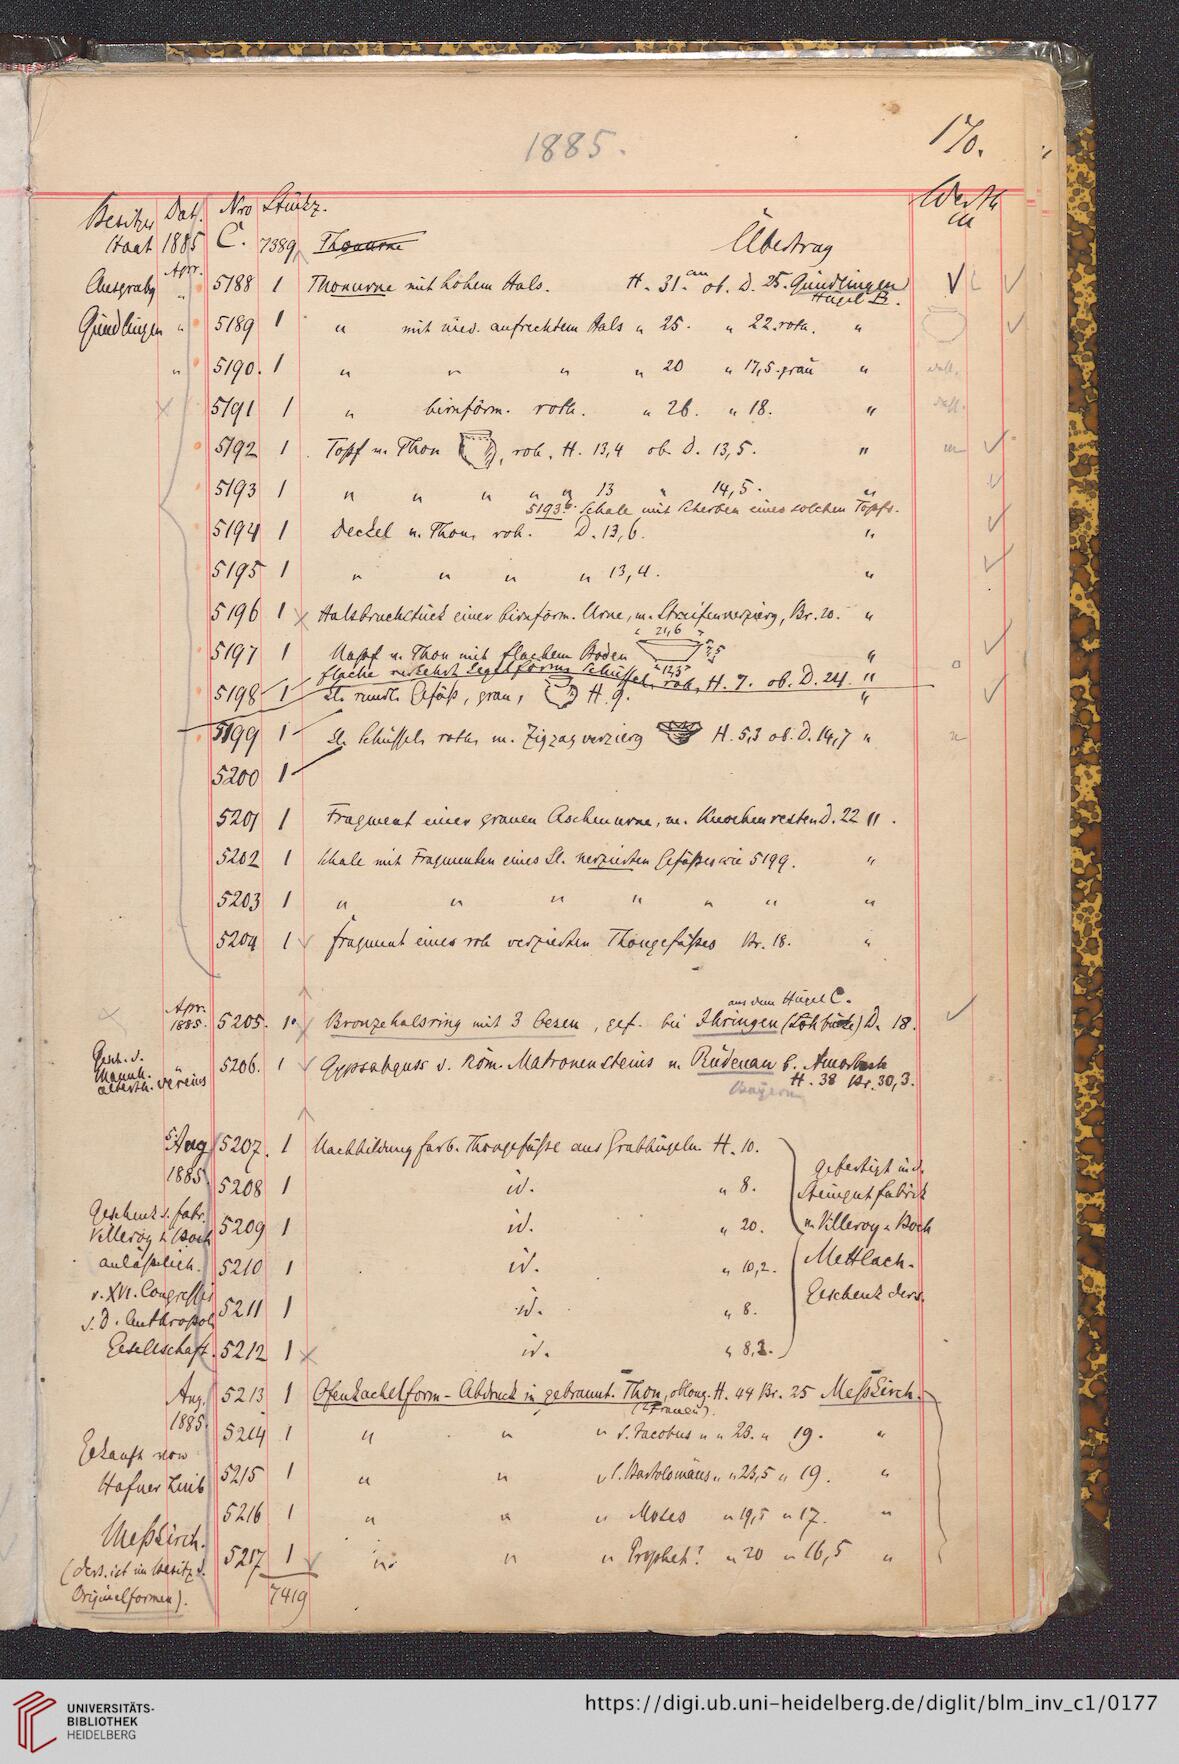 1885.
170.
Besitzer Dat. Nro Stückz. Werth
Staat 1885 C. 7389 Thonurne Übertrag M
Ausgrabg Apr. „ 5188 1 Thonurne mit hohem Hals. H. 31. cm ob. D. 25. Gündlingen
Hügel B.
Gündlingen „ 5189 1 „ mit nied. aufrechtem Hals „ 25. „ 22. roth. „
„ 5190. 1 „ „ „ „ 20 „ 17,5. grau „
5191 1 „ birnförm. roth. „ 26. „ 18. „
5192 1 Topf v. Thon , roh, H. 13,4 ob. D. 13,5. „
5193 1 „ „ „ „ „ 13 „ 14,5. „
5193b. Schale mit Scherben eines solchen Topfs.
5194 1 Deckel v. Thon, roh. D. 13,6. „
5195 1 „ „ „ „ 13,4. „
5196 1 Halsbruchstück einer birnförm. Urne, m. Streifenverzierg, Br. 20. „
„ 21,6 „
5197 1 Napf v. Thon mit flachem Boden 7,5 „
„ 12,5 „
flache verkehrt kegelförm. Schüssel, roh, H. 7. ob. D. 24. „
5198 1 kl. rundl. Gefäß, grau, H. 9. „
5199 1 kl. Schüssel, roth, m. Zigzagverzierg H. 5,3 ob. D. 14,7 „
5200 1
5201 1 Fragment einer grauen Aschenurne, m. Knochenresten D. 22 „ .
5202 1 Schale mit Fragmenten eines kl. verzierten Gefäßes wie 5199. „
5203 1 „ „ „ „ „ „ „
5204 1 Fragment eines roh verzierten Thongefäßes Br. 18. „
aus dem Hügel C.
Apr. 1885. 5205. 1 Bronzehalsring mit 3 Oesen, gef. bei Ihringen (Lohbücke) D. 18.
Gesch. d. Mannh. Alterth. vereins 5206. 1 Gypsabguss d. Röm. Matronensteins v. Rüdenau b. Amorbach
H. 38 Br. 30,3.
Bayern
5. Aug 5207. 1 Nachbildung farb. Thongefäße aus Grabhügeln. H. 10.
1885 5208 1 id. „ 8.
5209 1 id. „ 20.
5210 1 id. „ 10,2.
5211 1 id. „ 8.
5212 1 id. „ 8,2.
gefertigt in d.
Steingutfabrik
v. Villeroy u. Boch
Mettlach.
Geschenk ders.
Geschenk d. Fabr.
Villeroy u. Boch
anläßlich
d. XVI. Congresses
d. D. Anthropol.
Gesellschaft.
Aug. 5213 1 Ofenkachelform-Abdruck in gebrannt. Thon, oblong. H. 44 Br. 25 Meßkirch.
(2 Frauen).
1885. 5214 1 „ „ „ S. Jacobus „ „ 23. „ 19. „
5215 1 „ „ „ S. Bartolomäus „ „ 23,5 „ 19. „
5216 1 „ „ „ Moses „ 19,5 „ 17. „
5217 1 „ „ „ Prophet? „ 20 „ 16,5 „
7419
Gekauft von
Hafner Leib
Meßkirch.
(ders. ist im Besitz d.
Originalformen).
UNIVERSITÄTS-
BIBLIOTHEK
HEIDELBERG
https://digi.ub.uni-heidelberg.de/diglit/blm_inv_c1/0177